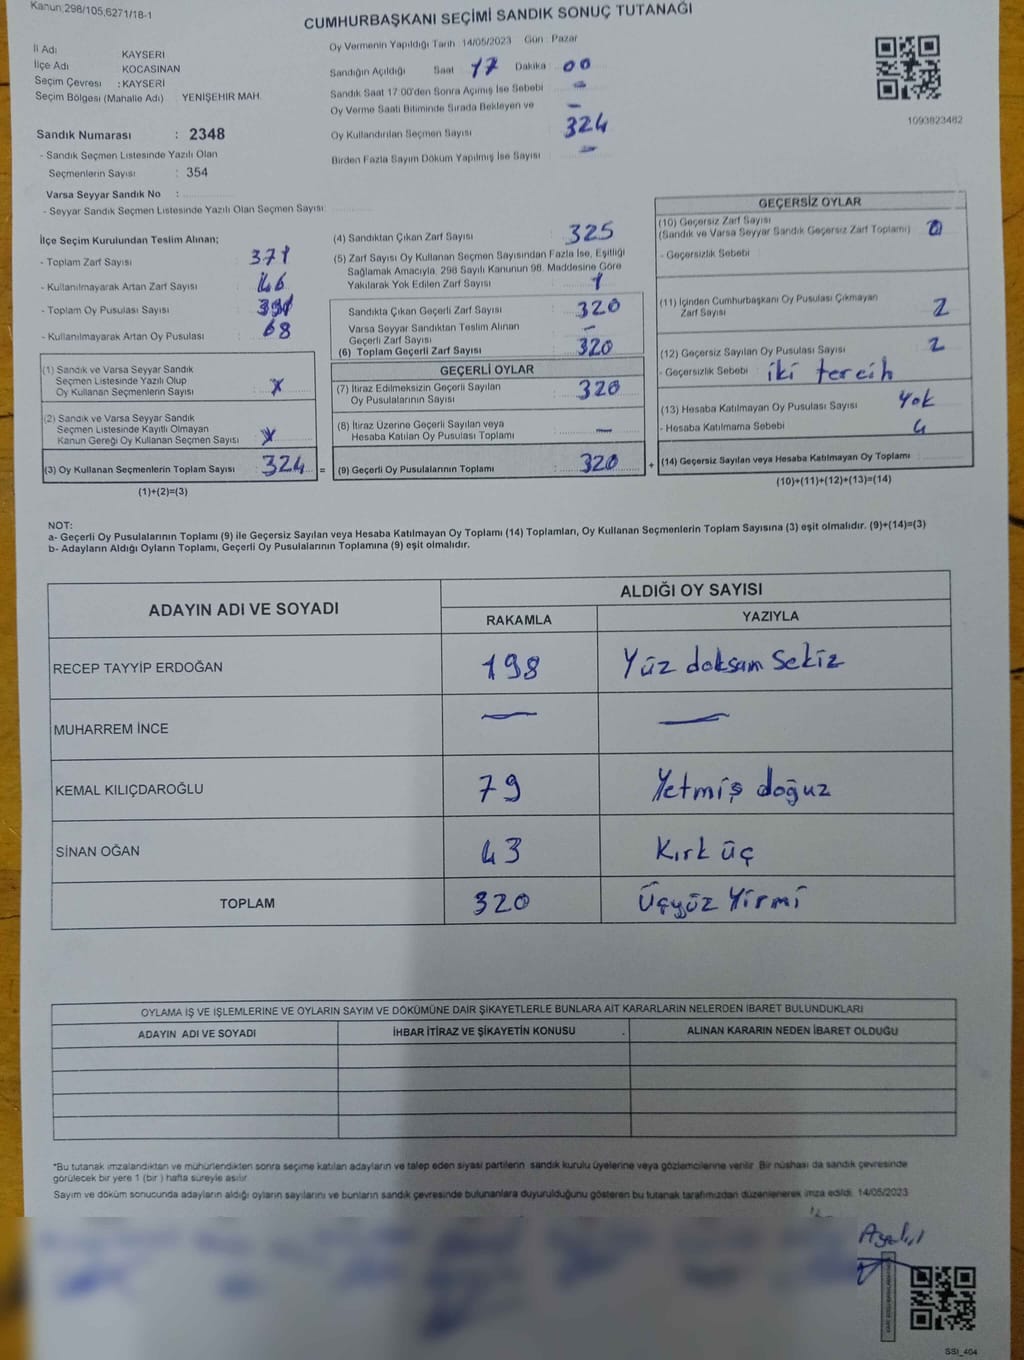 Kanun;298/105,6271/18-1
CUMHURBAŞKANI SEÇİMİ SANDIK SONUÇ TUTANAĞI
İl Adı KAYSERI
İlçe Adı KOCASINAN
Seçim Çevresi : KAYSERI
Seçim Bölgesi (Mahalle Adı) YENIŞEHIR MAH.
Sandık Numarası : 2348
- Sandık Seçmen Listesinde Yazılı Olan
Seçmenlerin Sayısı : 354
Varsa Seyyar Sandık No :
- Seyyar Sandık Seçmen Listesinde Yazılı Olan Seçmen Sayısı:
Oy Vermenin Yapıldığı Tarih :14/05/2023 Gün : Pazar
Sandığın Açıldığı Saat 17 Dakika 00
Sandık Saat 17:00'den Sonra Açımış İse Sebebi —
Oy Verme Saati Bitiminde Sırada Bekleyen ve —
Oy Kullandırılan Seçmen Sayısı 324
Birden Fazla Sayım Döküm Yapılmış İse Sayısı —
1093823462
İlçe Seçim Kurulundan Teslim Alınan;
- Toplam Zarf Sayısı : 371
- Kullanılmayarak Artan Zarf Sayısı : 46
- Toplam Oy Pusulası Sayısı
- Kullanılmayarak Artan Oy Pusulası : 68
(1) Sandık ve Varsa Seyyar Sandık
Seçmen Listesinde Yazılı Olup
Oy Kullanan Seçmenlerin Sayısı :
(2) Sandık ve Varsa Seyyar Sandık
Seçmen Listesinde Kayıtlı Olmayan
Kanun Gereği Oy Kullanan Seçmen Sayısı :
(3) Oy Kullanan Seçmenlerin Toplam Sayısı : 324 =
(1)+(2)=(3)
(4) Sandıktan Çıkan Zarf Sayısı : 325
(5) Zarf Sayısı Oy Kullanan Seçmen Sayısından Fazla İse, Eşitliği
Sağlamak Amacıyla, 298 Sayılı Kanunun 98. Maddesine Göre
Yakılarak Yok Edilen Zarf Sayısı : 1
Sandıkta Çıkan Geçerli Zarf Sayısı : 320
Varsa Seyyar Sandıktan Teslim Alınan
Geçerli Zarf Sayısı : —
(6) Toplam Geçerli Zarf Sayısı : 320
GEÇERLİ OYLAR
(7) İtiraz Edilmeksizin Geçerli Sayılan
Oy Pusulalarının Sayısı : 320
(8) İtiraz Üzerine Geçerli Sayılan veya
Hesaba Katılan Oy Pusulası Toplamı : —
(9) Geçerli Oy Pusulalarının Toplamı : 320 +
GEÇERSİZ OYLAR
(10) Geçersiz Zarf Sayısı
(Sandık ve Varsa Seyyar Sandık Geçersiz Zarf Toplamı) : 0
- Geçersizlik Sebebi
(11) İçinden Cumhurbaşkanı Oy Pusulası Çıkmayan
Zarf Sayısı 2
(12) Geçersiz Sayılan Oy Pusulası Sayısı : 2
- Geçersizlik Sebebi : iki tercih
(13) Hesaba Katılmayan Oy Pusulası Sayısı : Yok
- Hesaba Katılmama Sebebi 4
(14) Geçersiz Sayılan veya Hesaba Katılmayan Oy Toplamı :
(10)+(11)+(12)+(13)=(14)
NOT:
a- Geçerli Oy Pusulalarının Toplamı (9) ile Geçersiz Sayılan veya Hesaba Katılmayan Oy Toplamı (14) Toplamları, Oy Kullanan Seçmenlerin Toplam Sayısına (3) eşit olmalıdır. (9)+(14)=(3)
b- Adayların Aldığı Oyların Toplamı, Geçerli Oy Pusulalarının Toplamına (9) eşit olmalıdır.
ADAYIN ADI VE SOYADI ALDIĞI OY SAYISI
RAKAMLA YAZIYLA
RECEP TAYYİP ERDOĞAN 198 Yüz doksam Sekiz
MUHARREM İNCE — —
KEMAL KILIÇDAROĞLU 79 Yetmiş doğuz
SİNAN OĞAN 43 Kırk üç
TOPLAM 320 Üçyüz Yirmi
OYLAMA İŞ VE İŞLEMLERINE VE OYLARIN SAYIM VE DÖKÜMÜNE DAİR ŞİKAYETLERLE BUNLARA AIT KARARLARIN NELERDEN İBARET BULUNDUKLARI
ADAYIN ADI VE SOYADI İHBAR İTİRAZ VE ŞİKAYETİN KONUSU ALINAN KARARIN NEDEN İBARET OLDUĞU
*Bu tutanak imzalandıktan ve mühürlendikten sonra seçime katılan adayların ve talep eden siyasi partilerin sandık kurulu üyelerine veya gözlemcilerine verilir. Bir nüshası da sandık çevresinde
görülecek bir yere 1 (bir ) hafta süreyle asılır.
Sayım ve döküm sonucunda adayların aldığı oyların sayılarını ve bunların sandık çevresinde bulunanlara duyurulduğunu gösteren bu tutanak tarafımızdan düzenlenerek imza edildi. 14/05/2023
SSI_404